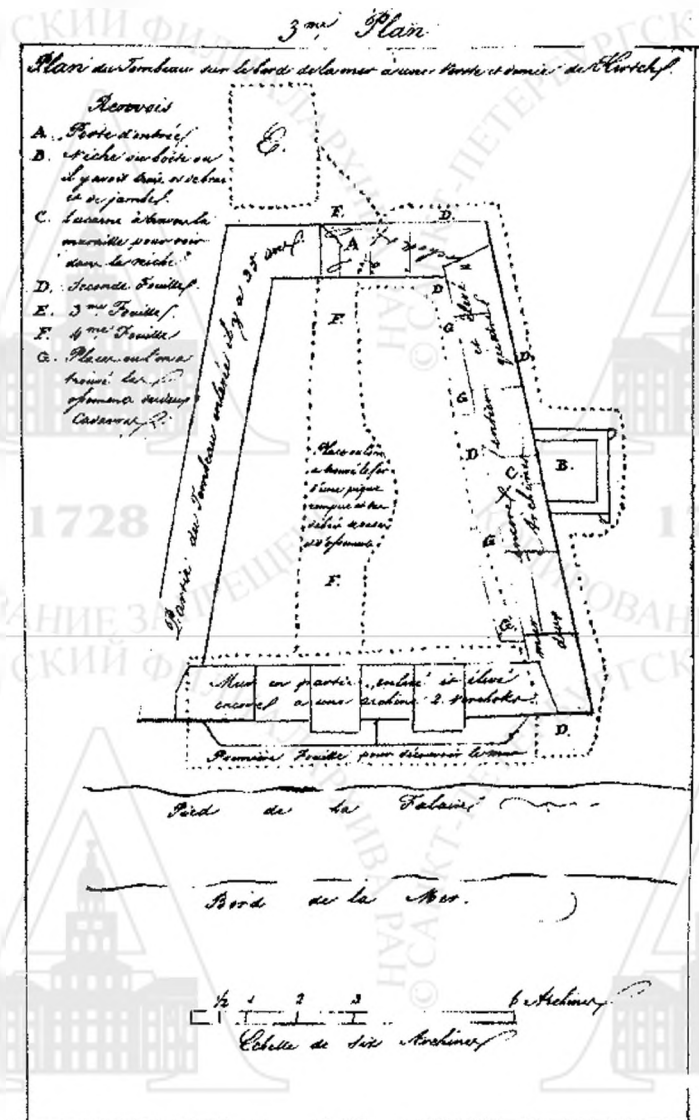 3me Plan
Plan du Tombeau sur le bord de la mer a une Verste et demie de Kertch
Renvois
A. Porte d'entrée
B. Niche ou boîte ou
il y avoit trois os de bras
et de jambes.
C. Lucarne à travers la
muraille pour voir
dans la niche
D. Seconde Fouille
E. 3me Fouille
F. 4me Fouille
G. Places ou l'on a
trouvé les
ossemens de deux
Cadavres
E.
F.
D.
A
D
F.
G
D
G
D
B.
C
G
F.
G.
D.
Partie du Tombeau enlevée il y a 25 ans
Place ou l'on
a trouvé le fer
d'une pique
rompue et des
débris de vases
et d'ossemens
mur encore entier et élevé
deux Archines
Mur en partie enlevé et élevé
encore a une archine 2. Verchoks.
Première Fouille pour découvrir le mur
Pied de la Falaise
Bord de la Mer.
1/2 1 2 3 6 Archines
Echelle de six Archines
1728
КИЙ ФИЛИАЛ АРХИВА РАН
© САНКТ-ПЕТЕРБУРГСКИЙ